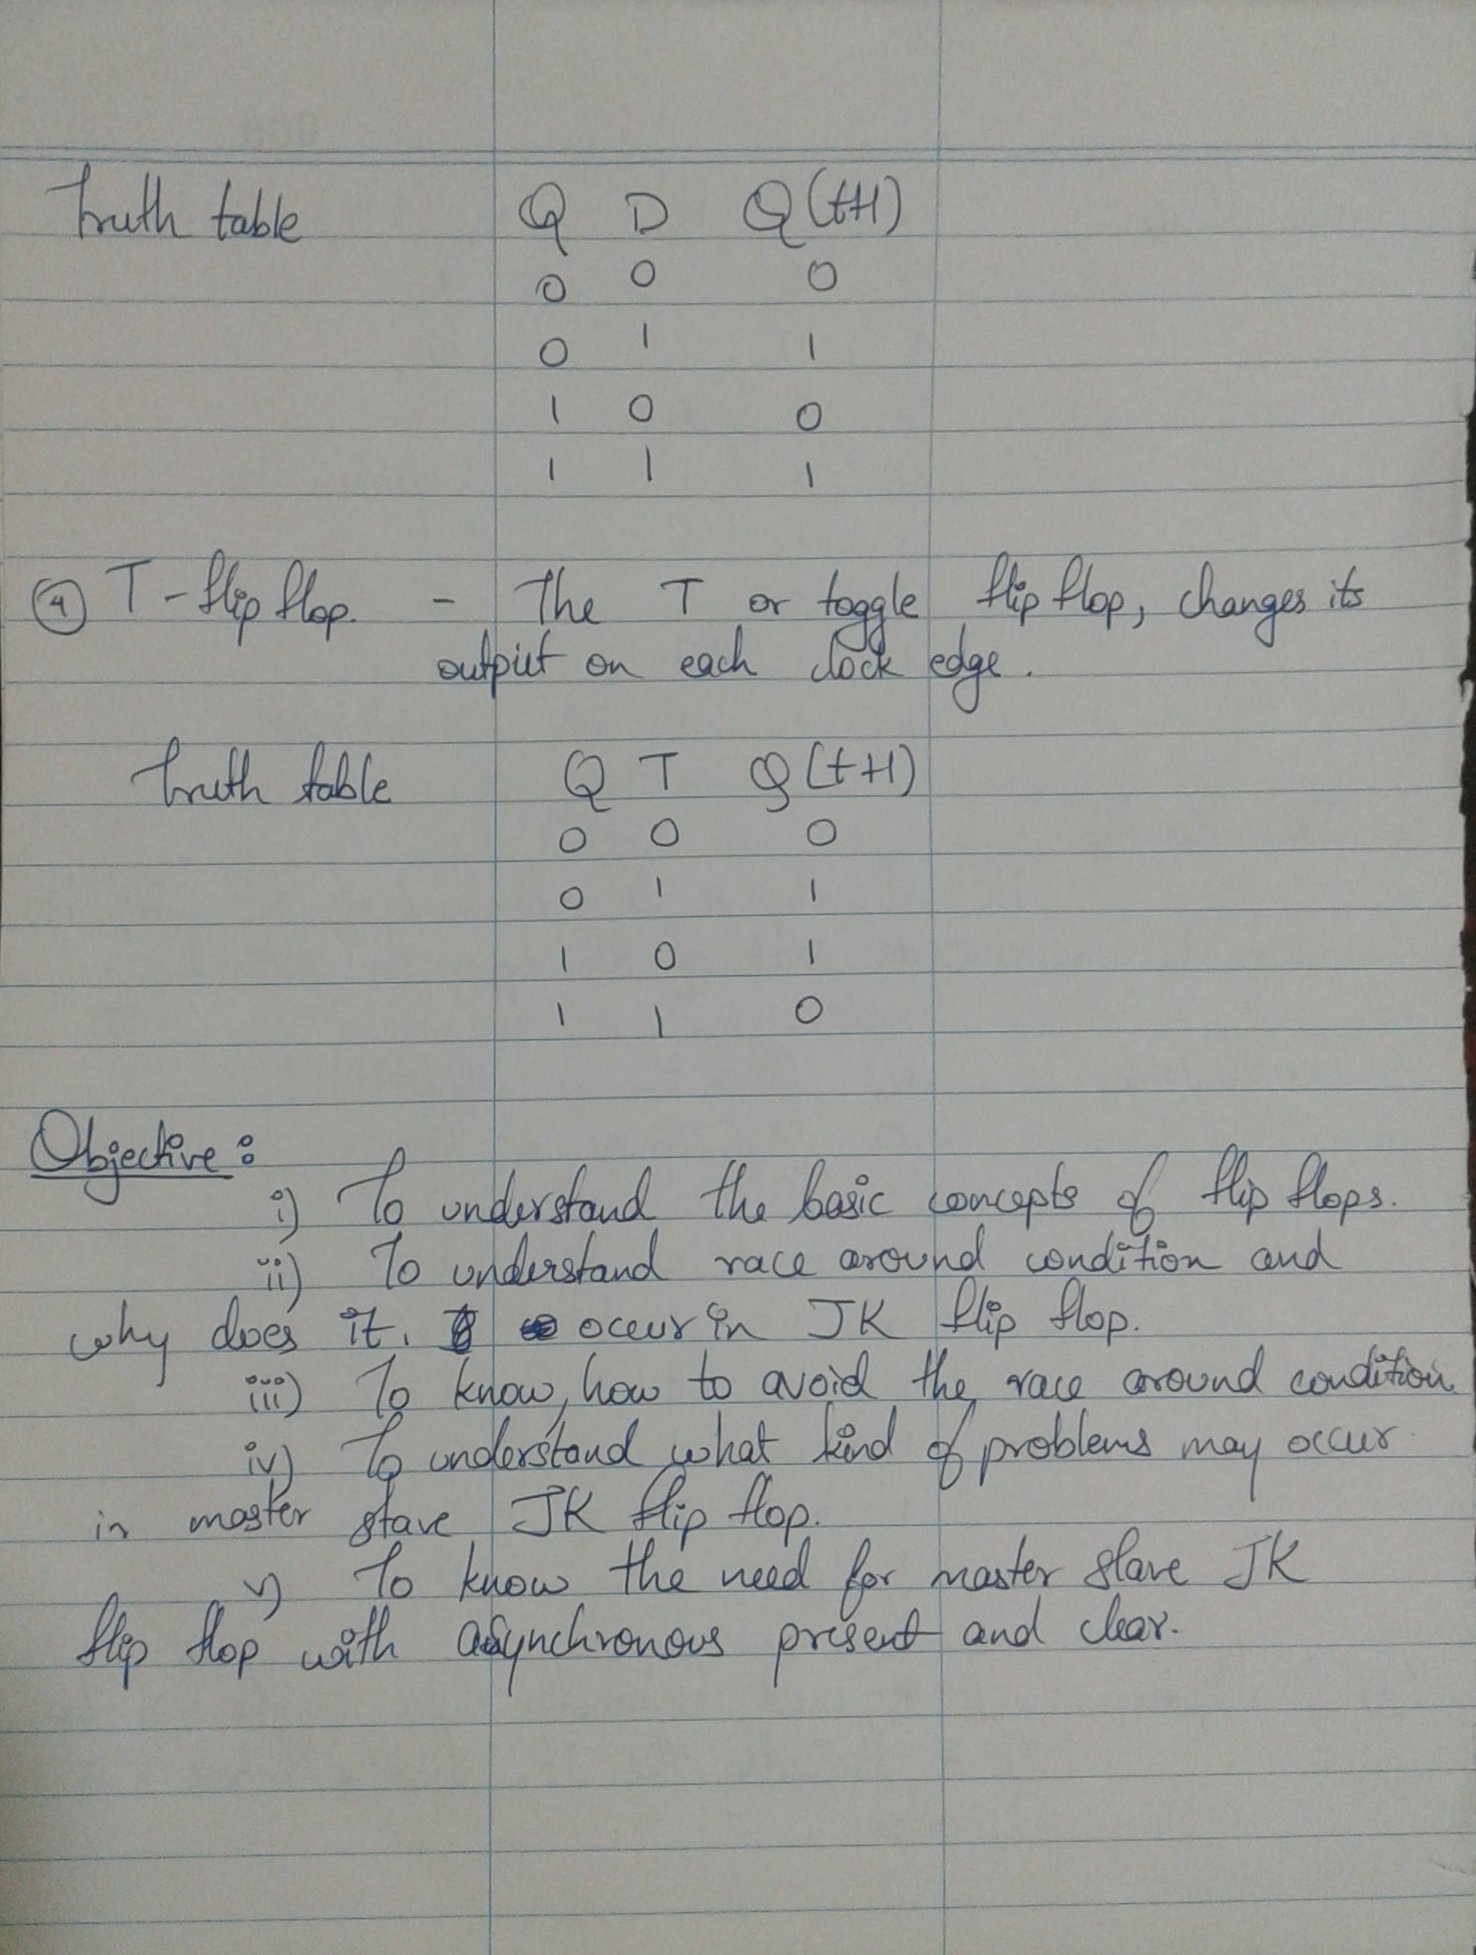 Truth table Q D Q(t+1)
0 0 0
0 1 1
1 0 0
1 1 1
④ T-flip flop. - The T or toggle flip flop, changes its
output on each clock edge.
Truth table Q T Q(t+1)
0 0 0
0 1 1
1 0 1
1 1 0
Objective:
i) To understand the basic concepts of flip flops.
ii) To understand race around condition and
why does it. occur in JK flip flop.
iii) To know, how to avoid the race around condition.
iv) To understand what kind of problems may occur
in master slave JK flip flop.
v) To know the need for master slave JK
flip flop with asynchronous present and clear.